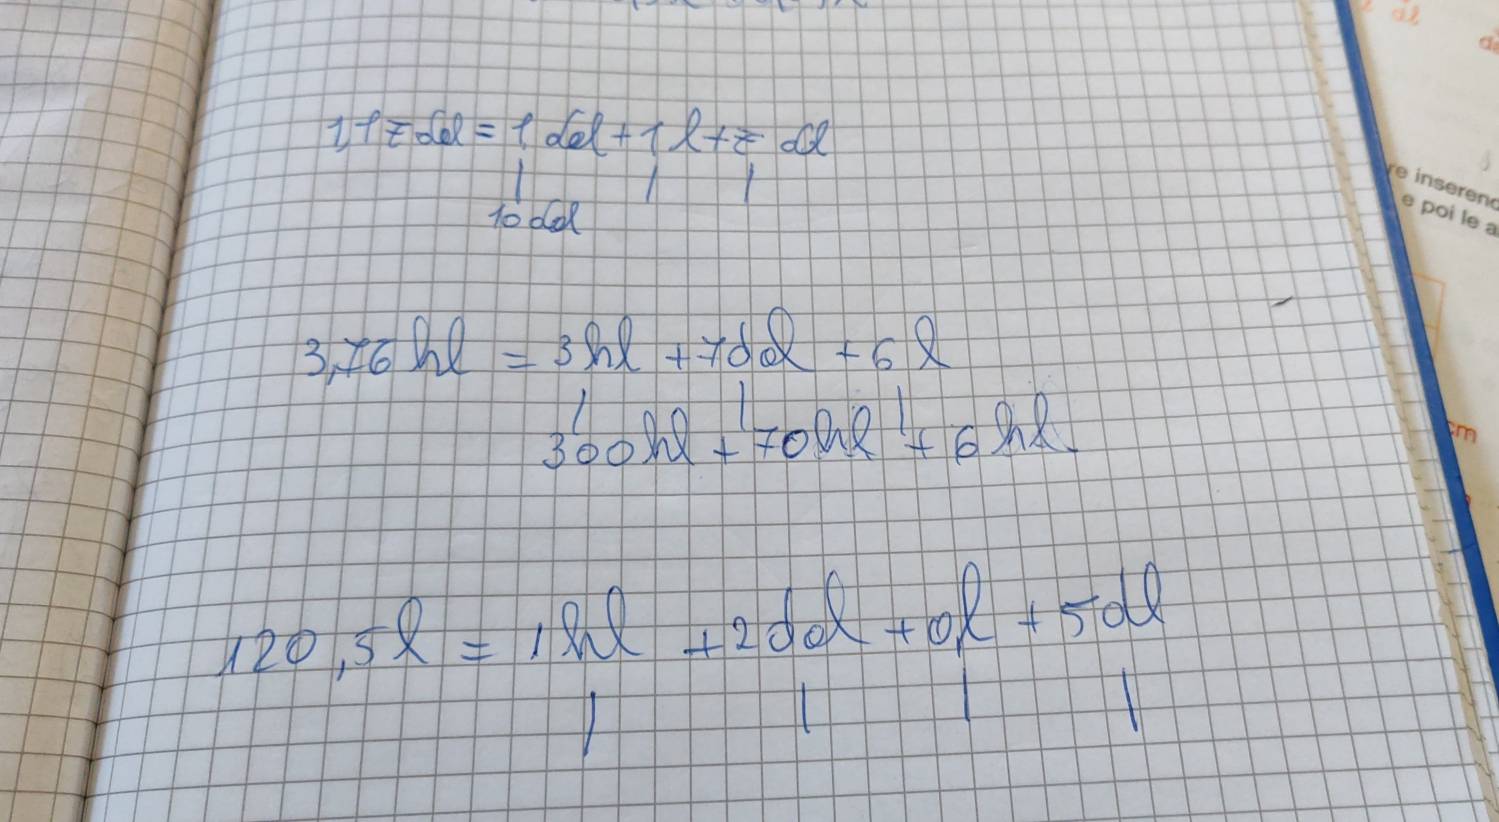 dl
1,17 dal = 1 dal + 1 l + 7 dl
10 dal
re inserend
e poi le a
3,76 hl = 3 hl + 7 dal + 6 l
300 hl + 70 hl + 6 hl
cm
120,5 l = 1 hl + 2 dal + 0 l + 5 dl